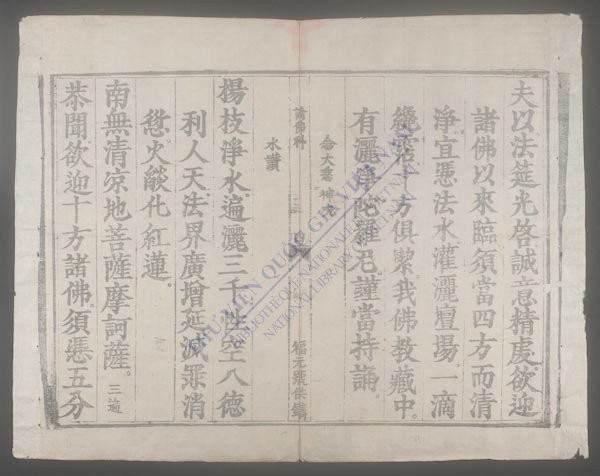 夫以法筵光啓誠意精虔欲迎
諸佛以來臨須當四方而清
淨宜憑法水灌灑壇場一滴
纔霑十方俱潔我佛教藏中
有灑淨陀羅尼謹當持誦
念大悲神咒
請佛科
福元號供鐫
水讚
楊枝淨水遍灑三千性空八德
利人天法界廣增延滅罪消
愆火燄化紅蓮
南無清凉地菩薩摩訶薩三遍
恭聞欲迎十方諸佛須憑五分
THƯ VIỆN QUỐC GIA VIỆT NAM
BIBLIOTHÈQUE NATIONALE DU VIETNAM
NATIONAL LIBRARY OF VIETNAM